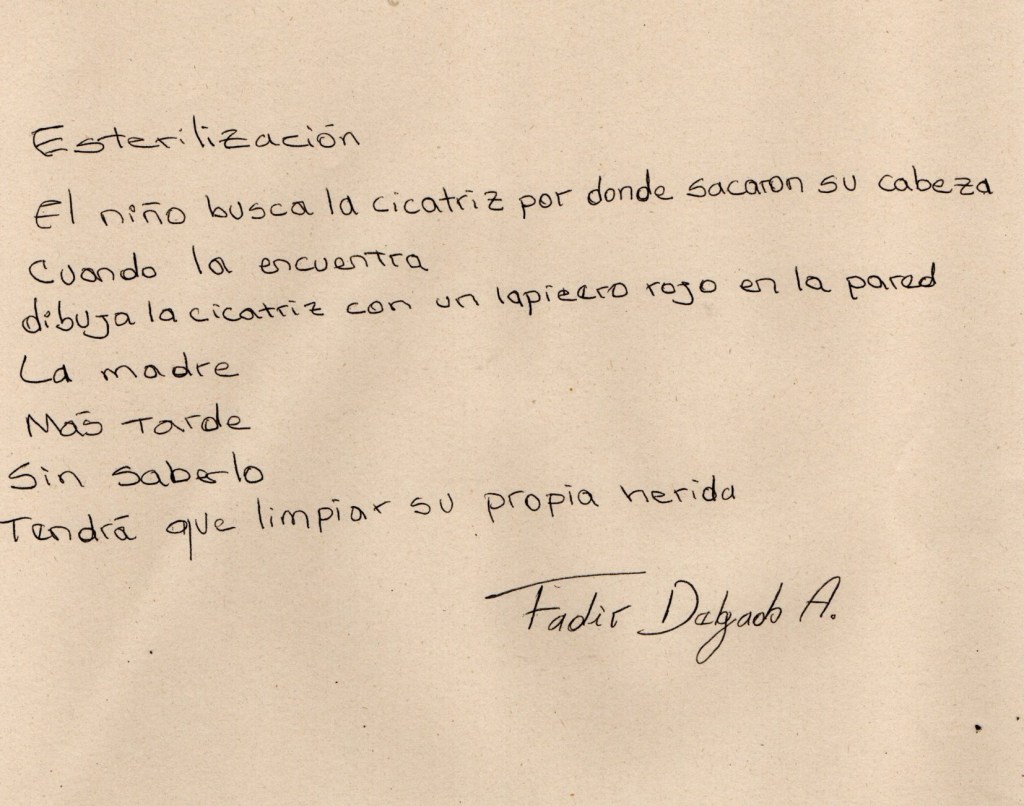 Esterilización
El niño busca la cicatriz por donde sacaron su cabeza
Cuando la encuentra
dibuja la cicatriz con un lapicero rojo en la pared
La madre
Más Tarde
Sin saberlo
Tendrá que limpiar su propia herida
Fadir Delgado A.